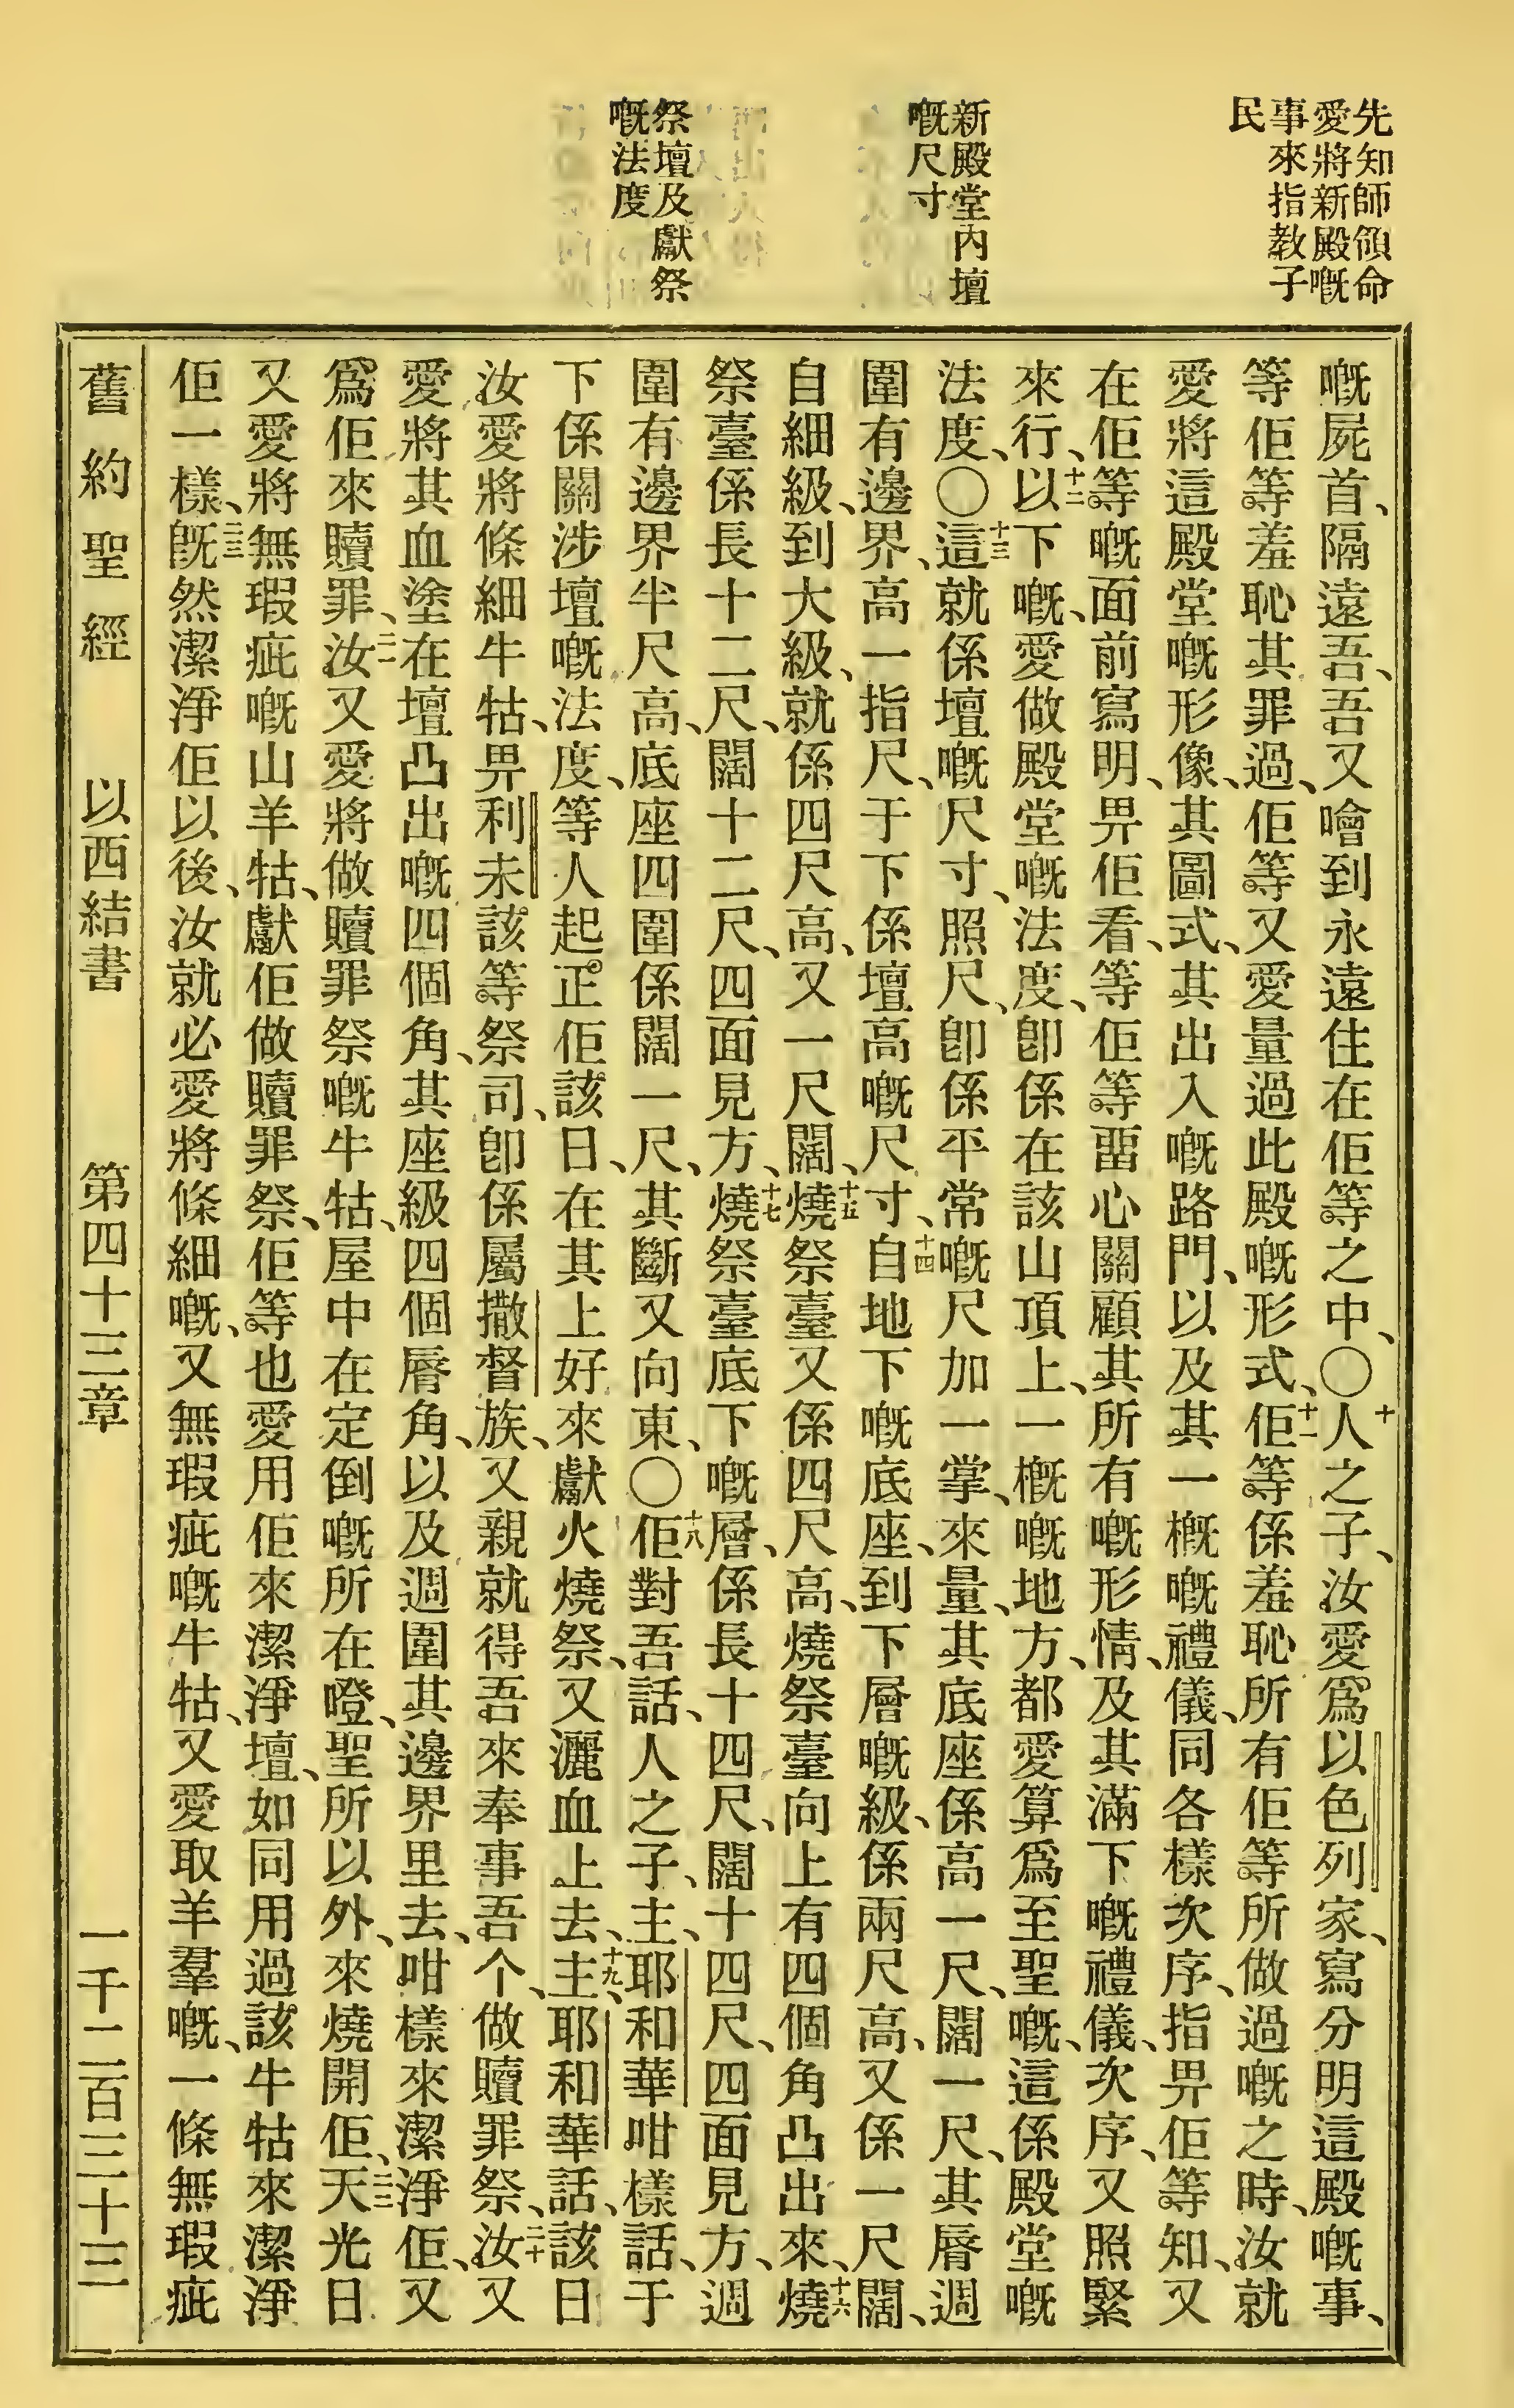 先知師領命
愛將新殿嘅
事來指敎子
民
新殿堂內壇
嘅尺寸
祭壇及獻祭
嘅法度
嘅屍首、隔遠吾、吾又噲到永遠住在佢等之中、〇十人之子、汝愛爲以色列家、寫分明這殿嘅事、
等佢等羞恥其罪過、佢等又愛量過此殿嘅形式、十一佢等係羞恥所有佢等所做過嘅之時、汝就
愛將這殿堂嘅形像、其圖式、其出入嘅路門、以及其一槪嘅禮儀、同各樣次序、指畀佢等知、又
在佢等嘅面前寫明、畀佢看、等佢等畱心關顧其所有嘅形情、及其滿下嘅禮儀、次序、又照緊
來行、十二以下嘅、愛做殿堂嘅法度、卽係在該山頂上、一槪嘅地方、都愛算爲至聖嘅、這係殿堂嘅
法度、〇十三這就係壇嘅尺寸、照尺、卽係平常嘅尺加一掌、來量、其底座係高一尺、闊一尺、其脣週
圍有邊界、高一指尺、于下係壇高嘅尺寸、十四自地下嘅底座、到下層嘅級、係兩尺高、又係一尺闊、
自細級、到大級、就係四尺高、又一尺闊、十五燒祭臺又係四尺高、燒祭臺向上有四個角凸出來、十六燒
祭臺係長十二尺、闊十二尺、四面見方、十七燒祭臺底下嘅層、係長十四尺、闊十四尺、四面見方、週
圍有邊界半尺高、底座四圍係闊一尺、其斷又向東、〇十八佢對吾話、人之子、主、耶和華咁樣話、于
下係關涉壇嘅法度、等人起正佢該日、在其上好來獻火燒祭、又灑血上去、十九主、耶和華話、該日
汝愛將條細牛牯、畀利未該等祭司、卽係屬撒督族、又親就得吾來奉事吾个、做贖罪祭、二十汝又
愛將其血塗在壇凸出嘅四個角、其座級四個脣角、以及週圍其邊界里去、咁樣來潔淨佢、又
爲佢來贖罪、二一汝又愛將做贖罪祭嘅牛牯、屋中在定倒嘅所在噔、聖所以外、來燒開佢、二二天光日
又愛將無瑕疵嘅山羊牯、獻佢做贖罪祭、佢等也愛用佢來潔淨壇、如同用過該牛牯來潔淨
佢一樣、二三旣然潔淨佢以後、汝就必愛將條細嘅、又無瑕疵嘅牛牯、又愛取羊羣嘅、一條無瑕疵
舊約聖經　以西結書　第四十三章　一千二百三十三